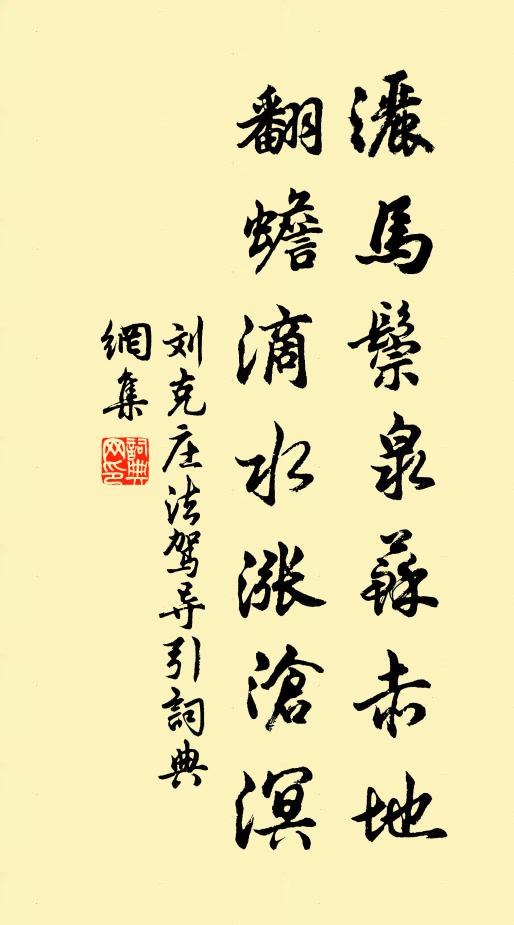 灑馬鬃泉蘇赤地
翻蟾滴水漲滄溟
刘克庄法駕导引詞典
網集
詞典
网印